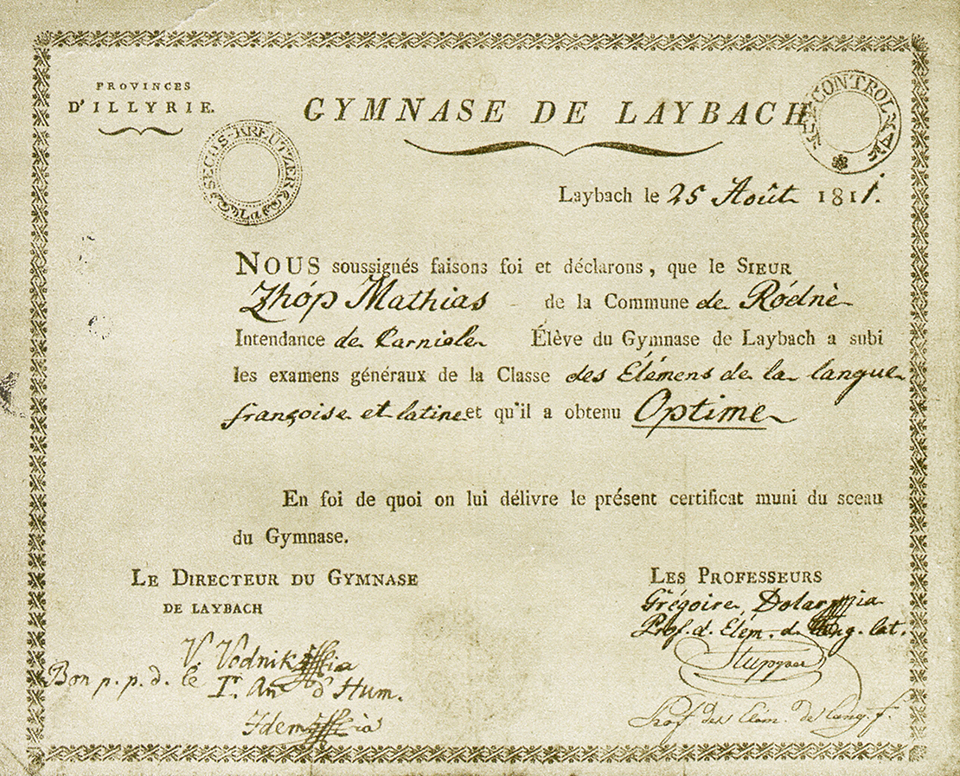 PROVINCES
D'ILLYRIE.
GYMNASE DE LAYBACH
SECHS-KREUTZER
CONTROL
Laybach le 25 Août 1811.
NOUS soussignés faisons foi et déclarons, que le SIEUR
Zhóp Mathias de la Commune de Ródnè
Intendance de Carniole Élève du Gymnase de Laybach a subi
les examens généraux de la Classe des Élémens de la langue
françoise et latine et qu'il a obtenu Optime
En foi de quoi on lui délivre le présent certificat muni du sceau
du Gymnase.
LE DIRECTEUR DU GYMNASE
DE LAYBACH
V. Vodnik
Bon p. p. d. le I.r An d'Hum.
Idem
LES PROFESSEURS
Grégoire Dolar
Prof. d. Elém. d. lang. lat.
Prof des Elém. de lang. f.